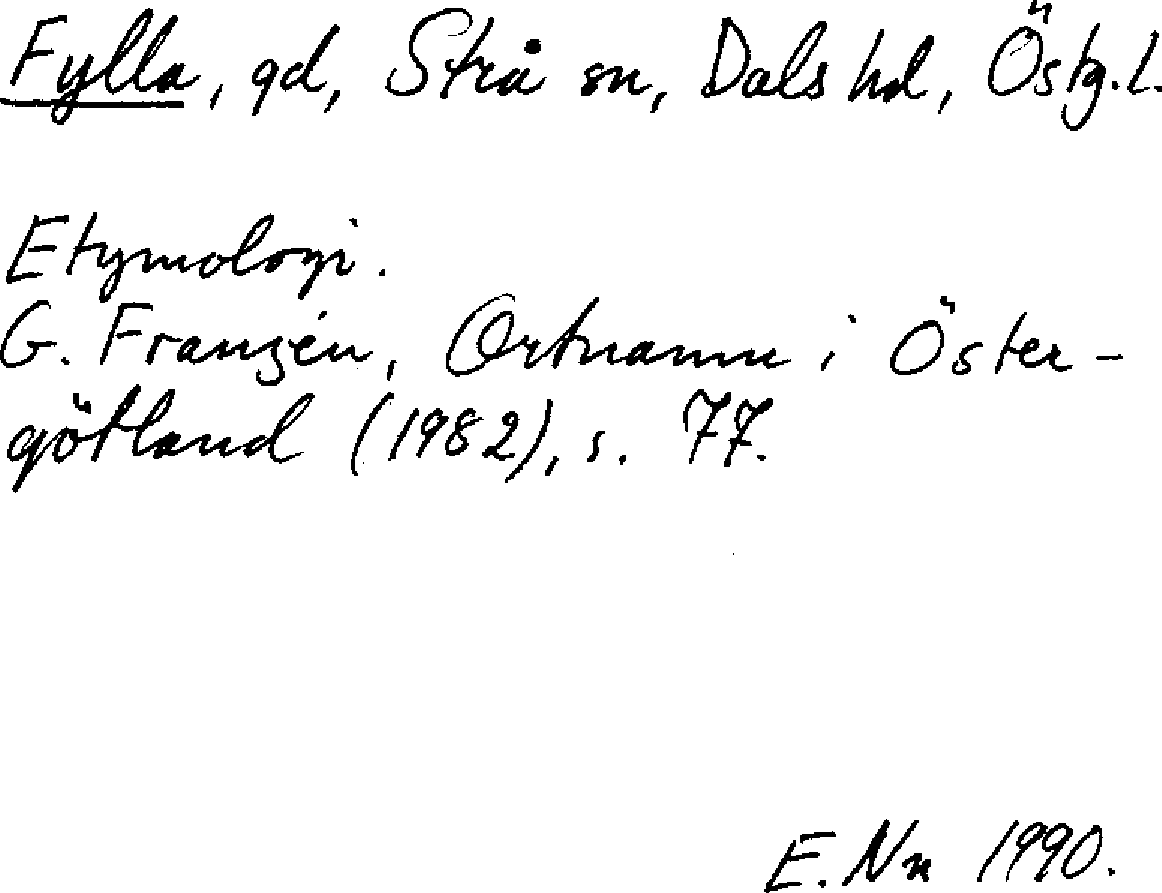 Fylla, gd, Strå sn, Dals hd, Östg.l.
Etymologi.
G. Franzén, Ortnamn i Öster-
götland (1982), s. 77.
E. Nn 1990.